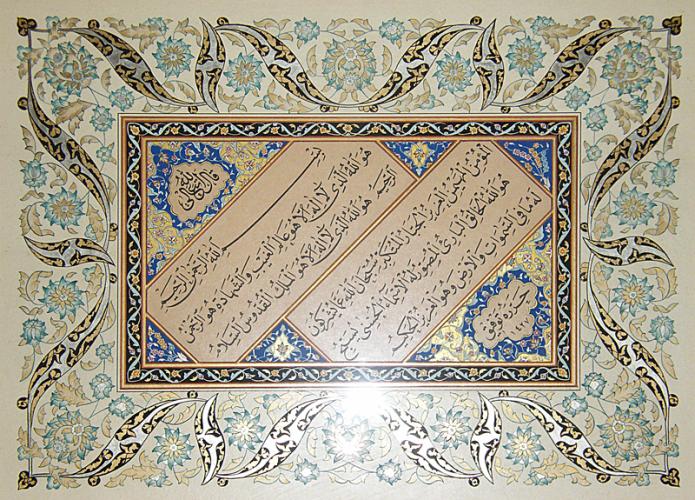 قال الله تعالى
بسم الله الرحمن الرحيم
هو الله الذي لا اله الا هو عالم الغيب والشهادة هو الرحمن
الرحيم هو الله الذي لا اله الا هو الملك القدوس السلام
المؤمن المهيمن العزيز الجبار المتكبر سبحان الله عما يشركون
هو الله الخالق البارئ المصور له الاسماء الحسنى يسبح
له ما في السموات والارض وهو العزيز الحكيم